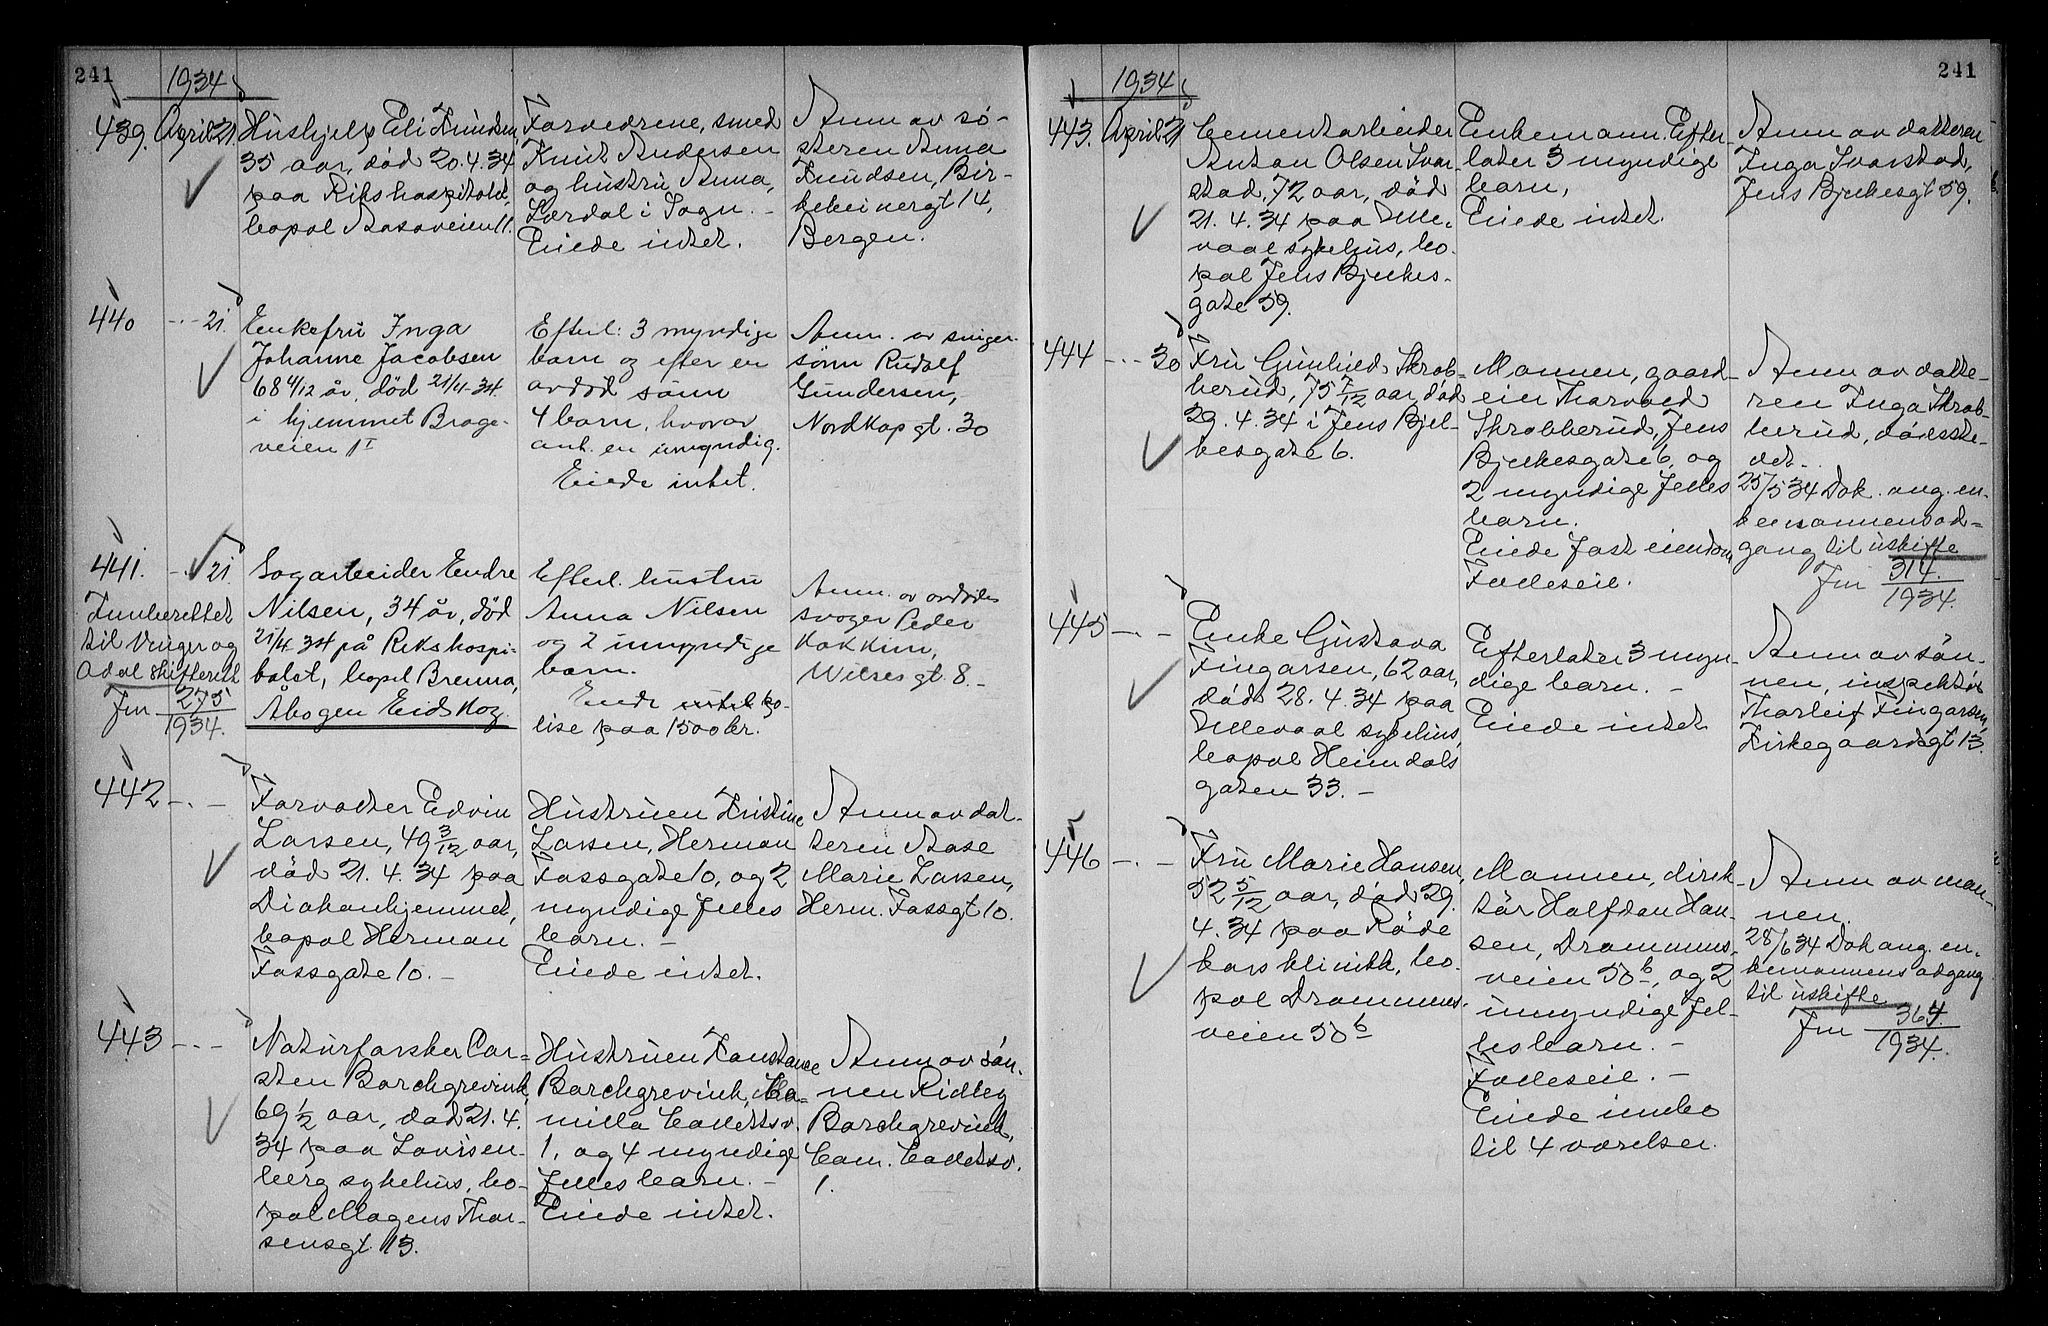 241
1934
439. April 21. Hushjelp Eli Knudsen,
35 aar, död 20.4.34
paa Rikshospitalet,
bopæl Aasaveien 11.
Forældrene, smed
Knut Andersen
og hustru Anna,
Lærdal i Sogn. -
Eiede intet.
Anm. av sö-
steren Anna
Knudsen, Bir-
kebeinergt 14,
Bergen.
440 -..- 21. Enkefru Inga
Johanne Jacobsen
68 4/12 år, död 21/4-34.
i hjemmet Brage-
veien 1 I
Efterl: 3 myndige
barn og efter en
avdöd sönn
4 barn, hvorav
ant. en umyndig.
Eiede intet.
Anm. av sviger-
sönn Rudolf
Gundersen,
Nordkapgt. 30
441. -..- 21. Sagarbeider Endre
Nilsen, 34 år, död
21/4 34 på Rikshospi-
talet, bopel Brenna,
Åbogen Eidskog.
Innberettet
til Vinger og
Odal skifterett
Jnr 275
1934.
Efterl. hustru
Anna Nilsen
og 2 umyndige
barn.
Eiede intet po-
lise paa 1500 kr.
Anm. av avdödes
svoger Peder
Kokkim,
Wilsesgt. 8. -
442 -..- Forvalter Edvin
Larsen, 49 3/12 aar,
död 21.4.34 paa
Diakonhjemmet,
bopæl Herman
Fossgate 10. -
Hustruen Kristine
Larsen, Herman
Fossgate 10, og 2
myndige felles
barn. -
Eiede intet.
Anm av dat-
teren Aase
Marie Larsen,
Herm. Fossgt 10.
443 -..- Naturforsker Car-
sten Borchgrevink,
69 1/2 aar, död 21.4.
34 paa Lovisen-
berg sykehus, bo-
pæl Mogens Thor-
sensgt. 13.
Hustruen Konstance
Borchgrevink, Ca-
milla Colletts v.
1, og 4 myndige
felles barn. -
Eiede intet.
Anm av sön-
nen Ridley
Borchgrevink,
Cam. Colletts v.
1.
241
1934
443. April 21 Cementarbeider
Anton Olsen Svar-
stad, 72 aar, död
21.4.34 paa Ulle-
vaal sykehus, bo-
pæl Jens Bjelkes-
gate 59.
Enkemann. Efter-
later 3 myndige
barn,
Eiede intet.
Anm av datteren
Inga Svarstad,
Jens Bjelkesgt 59.
444 -..- 30 Fru Gunhild Skrob-
berud, 75 7/12 aar, död
29.4.34 i Jens Bjel-
kesgate 6.
Mannen, gaard-
eier Thorvald
Skrobberud, Jens
Bjelkesgate 6, og
2 myndige felles
barn.
Eiede fast eiendom
Fælleseie.
Anm av datte-
ren Inga Skrob-
berud, dödsste-
det.
25/5 34 Dok. ang. en-
kemannens ad-
gang til uskifte
Jnr 314.
1934.
445 -..- Enke Gustava
Fingarsen, 62 aar,
död 28.4.34 paa
Ullevaal sykehus,
bopæl Heimdals
gaten 33. -
Efterlater 3 myn-
dige barn. -
Eiede intet
Anm av sön-
nen, inspektör
Thorleif Fingarsen,
Kirkegaardsgt 13.
446 -..- Fru Marie Hansen,
52 5/12 aar, död 29.
4.34 paa Röde
kors klinikk, bo-
pæl Drammens-
veien 50 b
Mannen, direk-
tör Halfdan Han-
sen, Drammens-
veien 50 b, og 2
umyndige fel-
les barn. -
Fælleseie. -
Eiede innbo
til 4 værelser.
Anm av man-
nen.
28/6 34 Dok ang. en-
kemannens adgang
til uskifte
Jnr 364.
1934.